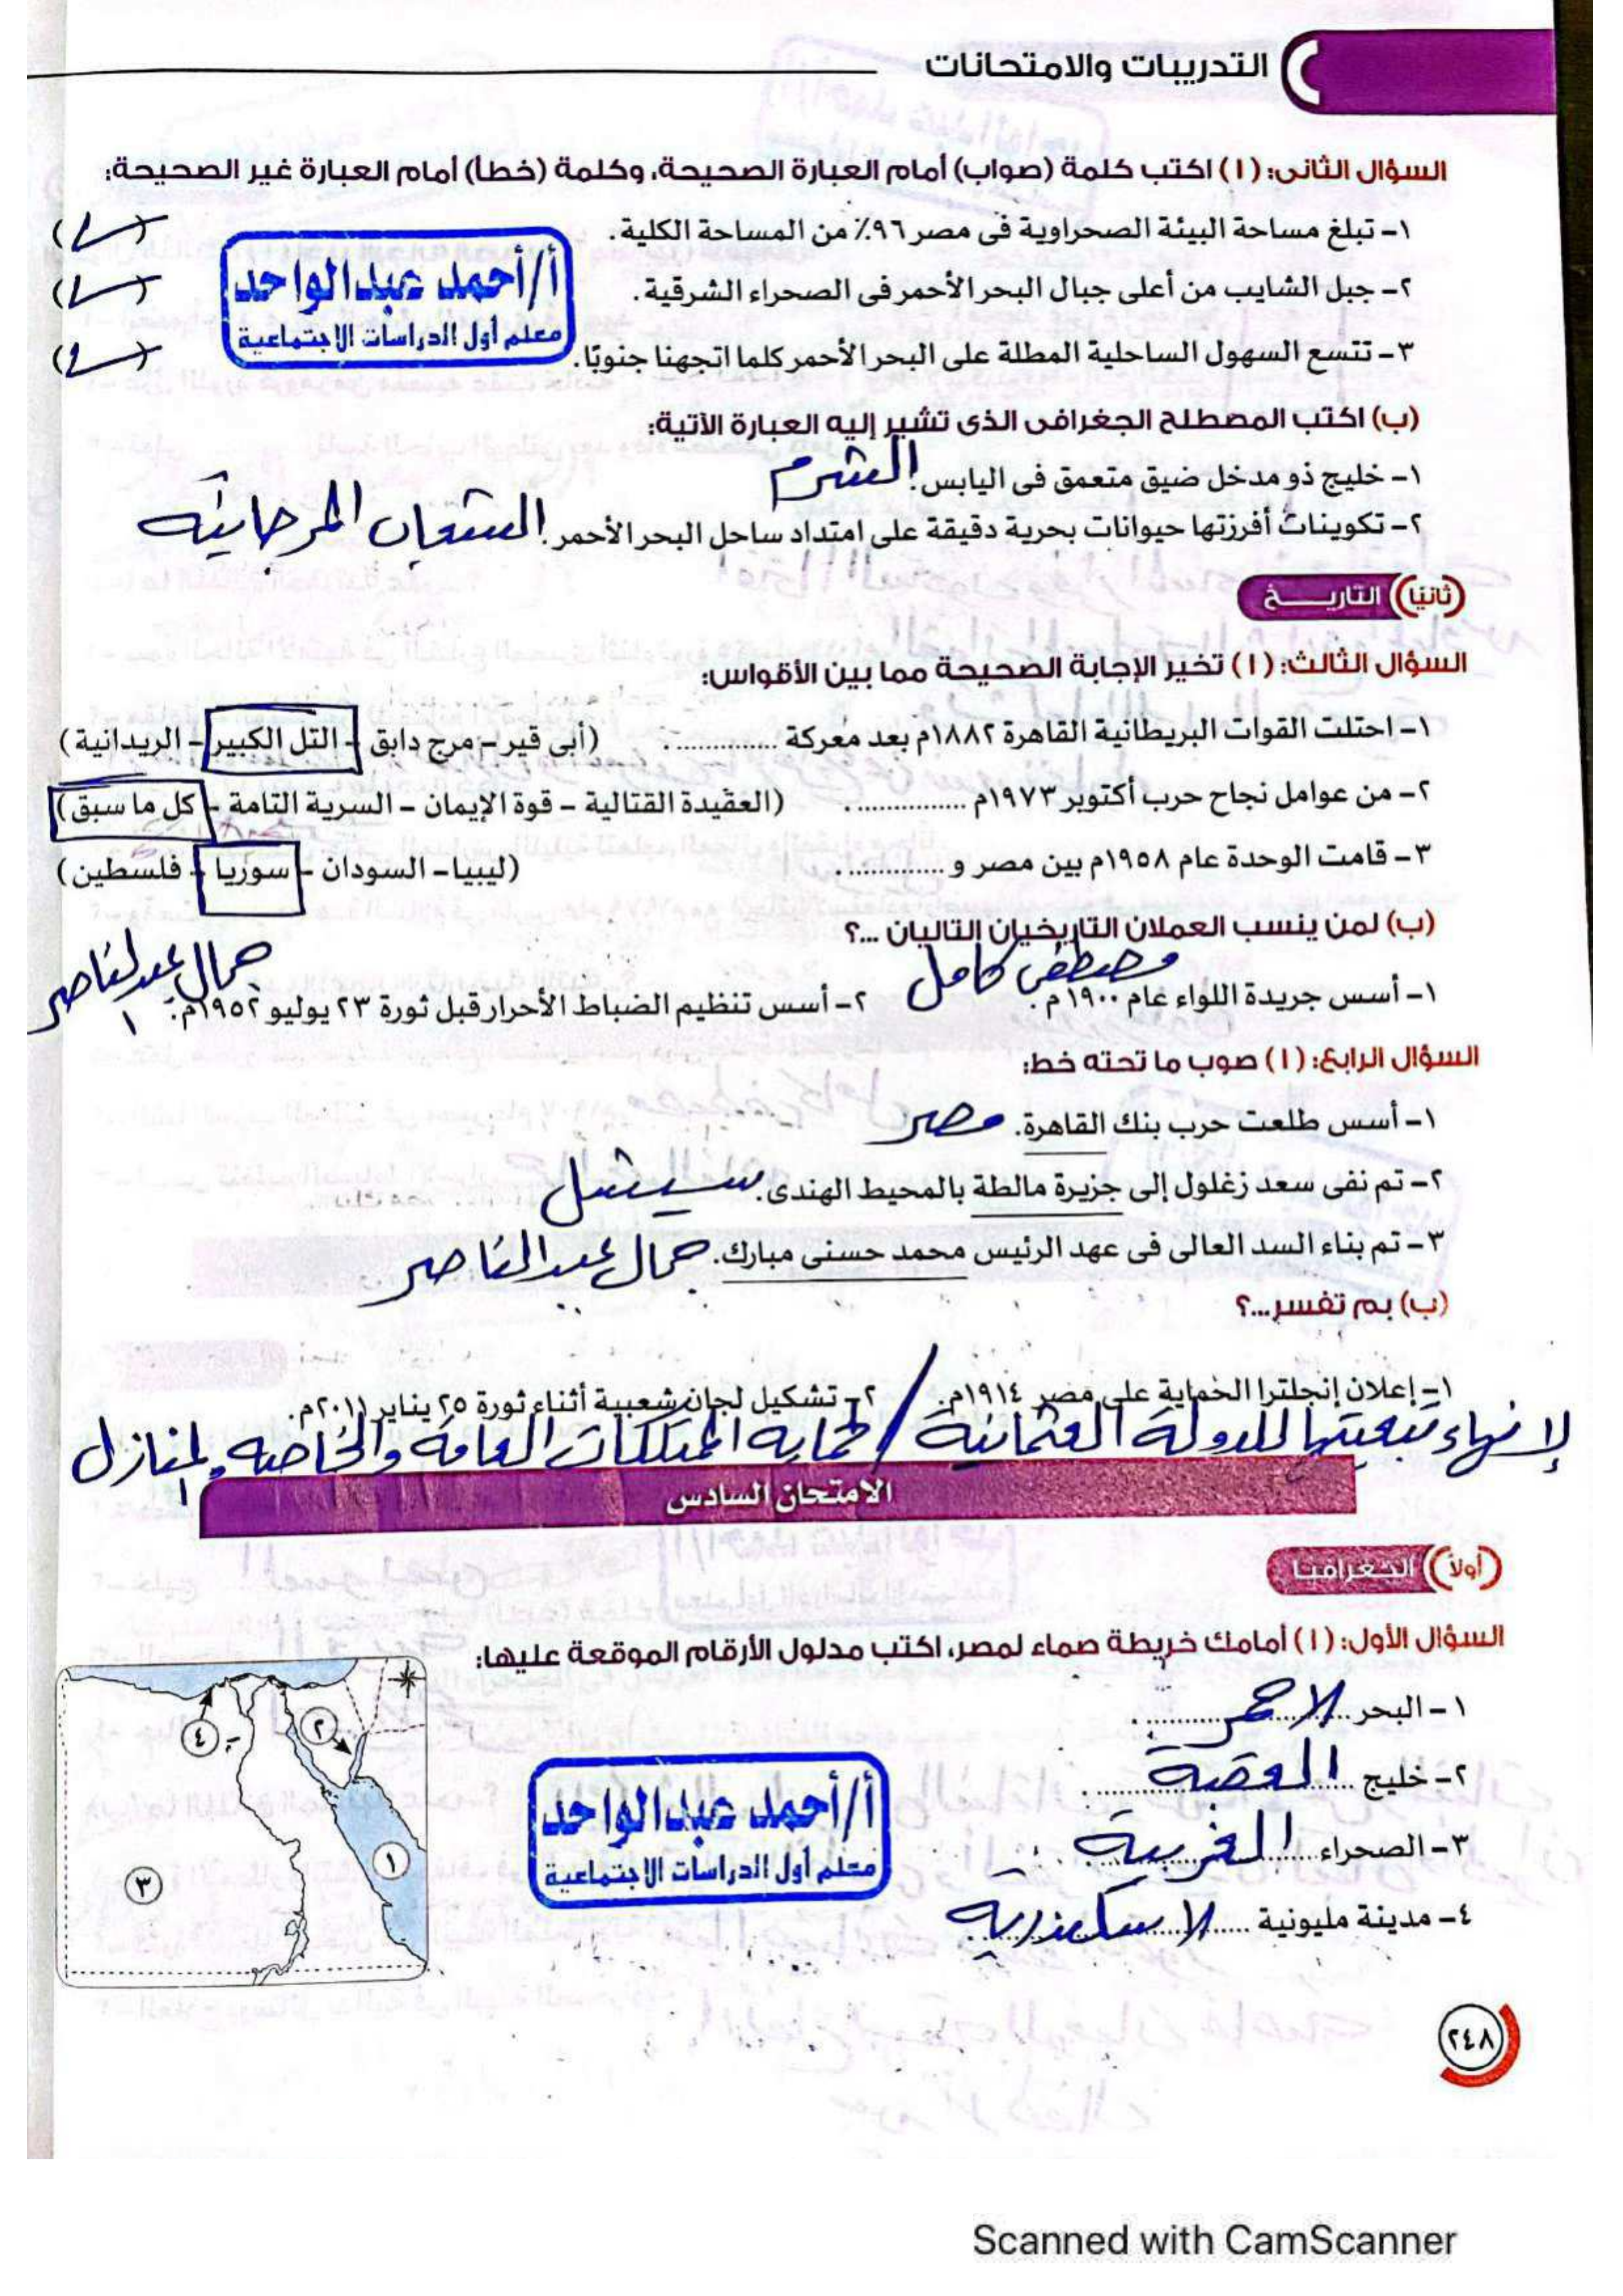 التدريبات والامتحانات
السؤال الثانى: (ا) اكتب كلمة (صواب) أمام العبارة الصحيحة، وكلمة (خطأ) أمام العبارة غير الصحيحة:
١- تبلغ مساحة البيئة الصحراوية فى مصر ٩٦٪ من المساحة الكلية.
٢- جبل الشايب من أعلى جبال البحر الأحمر فى الصحراء الشرقية.
أ/أحمد عبدالواحد
معلم أول الدراسات الاجتماعية
٣- تتسع السهول الساحلية المطلة على البحر الأحمر كلما اتجهنا جنوبًا.
(ب) اكتب المصطلح الجغرافى الذى تشير إليه العبارة الآتية:
١- خليج ذو مدخل ضيق متعمق فى اليابس. الشرم
٢- تكوينات أفرزتها حيوانات بحرية دقيقة على امتداد ساحل البحر الأحمر. الشعاب المرجانية
ثانيًا التاريخ
السؤال الثالث: (ا) تخير الإجابة الصحيحة مما بين الأقواس:
١- احتلت القوات البريطانية القاهرة ١٨٨٢م بعد معركة .............. (أبى قير - مرج دابق - التل الكبير - الريدانية)
٢- من عوامل نجاح حرب أكتوبر ١٩٧٣م .............. (العقيدة القتالية - قوة الإيمان - السرية التامة - كل ما سبق)
٣- قامت الوحدة عام ١٩٥٨م بين مصر و .............. (ليبيا - السودان - سوريا - فلسطين)
(ب) لمن ينسب العملان التاريخيان التاليان ...؟
١- أسس جريدة اللواء عام ١٩٠٠م. مصطفى كامل ٢- أسس تنظيم الضباط الأحرار قبل ثورة ٢٣ يوليو ١٩٥٢م. جمال عبد الناصر
السؤال الرابع: (ا) صوب ما تحته خط:
١- أسس طلعت حرب بنك القاهرة. مصر
٢- تم نفى سعد زغلول إلى جزيرة مالطة بالمحيط الهندى. سيشل
٣- تم بناء السد العالى فى عهد الرئيس محمد حسنى مبارك. جمال عبد الناصر
(ب) بم تفسر...؟
١- إعلان إنجلترا الحماية على مصر ١٩١٤م. ٢- تشكيل لجان شعبية أثناء ثورة ٢٥ يناير ٢٠١١م.
لإنهاء تبعيتها للدولة العثمانية / لحماية الممتلكات العامة والخاصة والمنازل
الامتحان السادس
أولاً الجغرافيا
السؤال الأول: (ا) أمامك خريطة صماء لمصر، اكتب مدلول الأرقام الموقعة عليها:
١- البحر الاحمر
٢- خليج العقبة
٣- الصحراء الغربية
٤- مدينة مليونية الاسكندرية
٤
٢
١
٣
أ/أحمد عبدالواحد
معلم أول الدراسات الاجتماعية
٢٤٨
Scanned with CamScanner